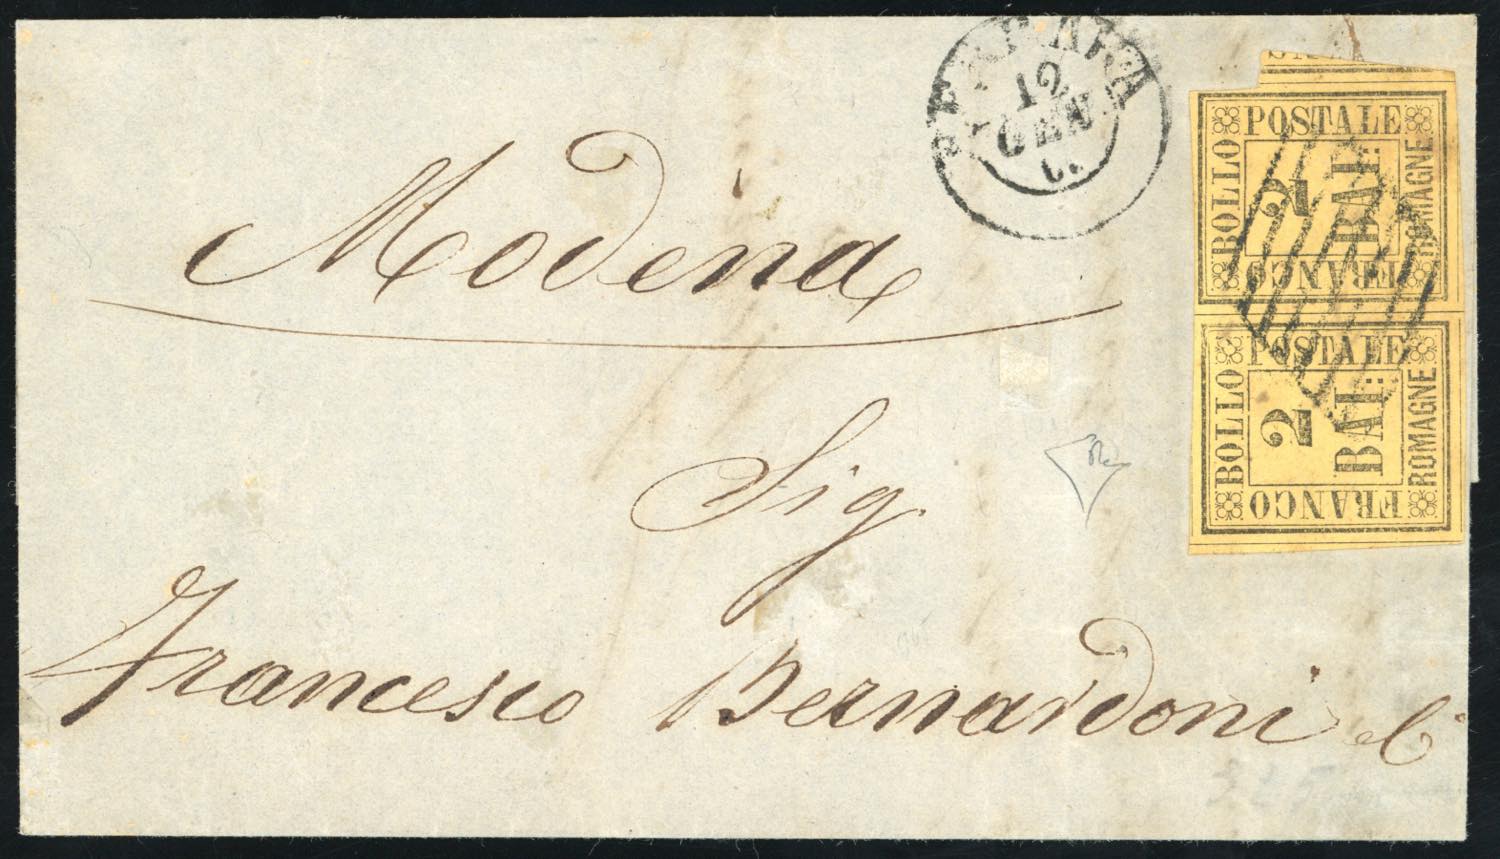 FERRARA
12
GEN
6.
Modena
Sig.
Francesco Bernardoni e C°
BOLLO POSTALE ROMAGNE FRANCO
2
BAI:
BOLLO POSTALE ROMAGNE FRANCO
2
BAI: